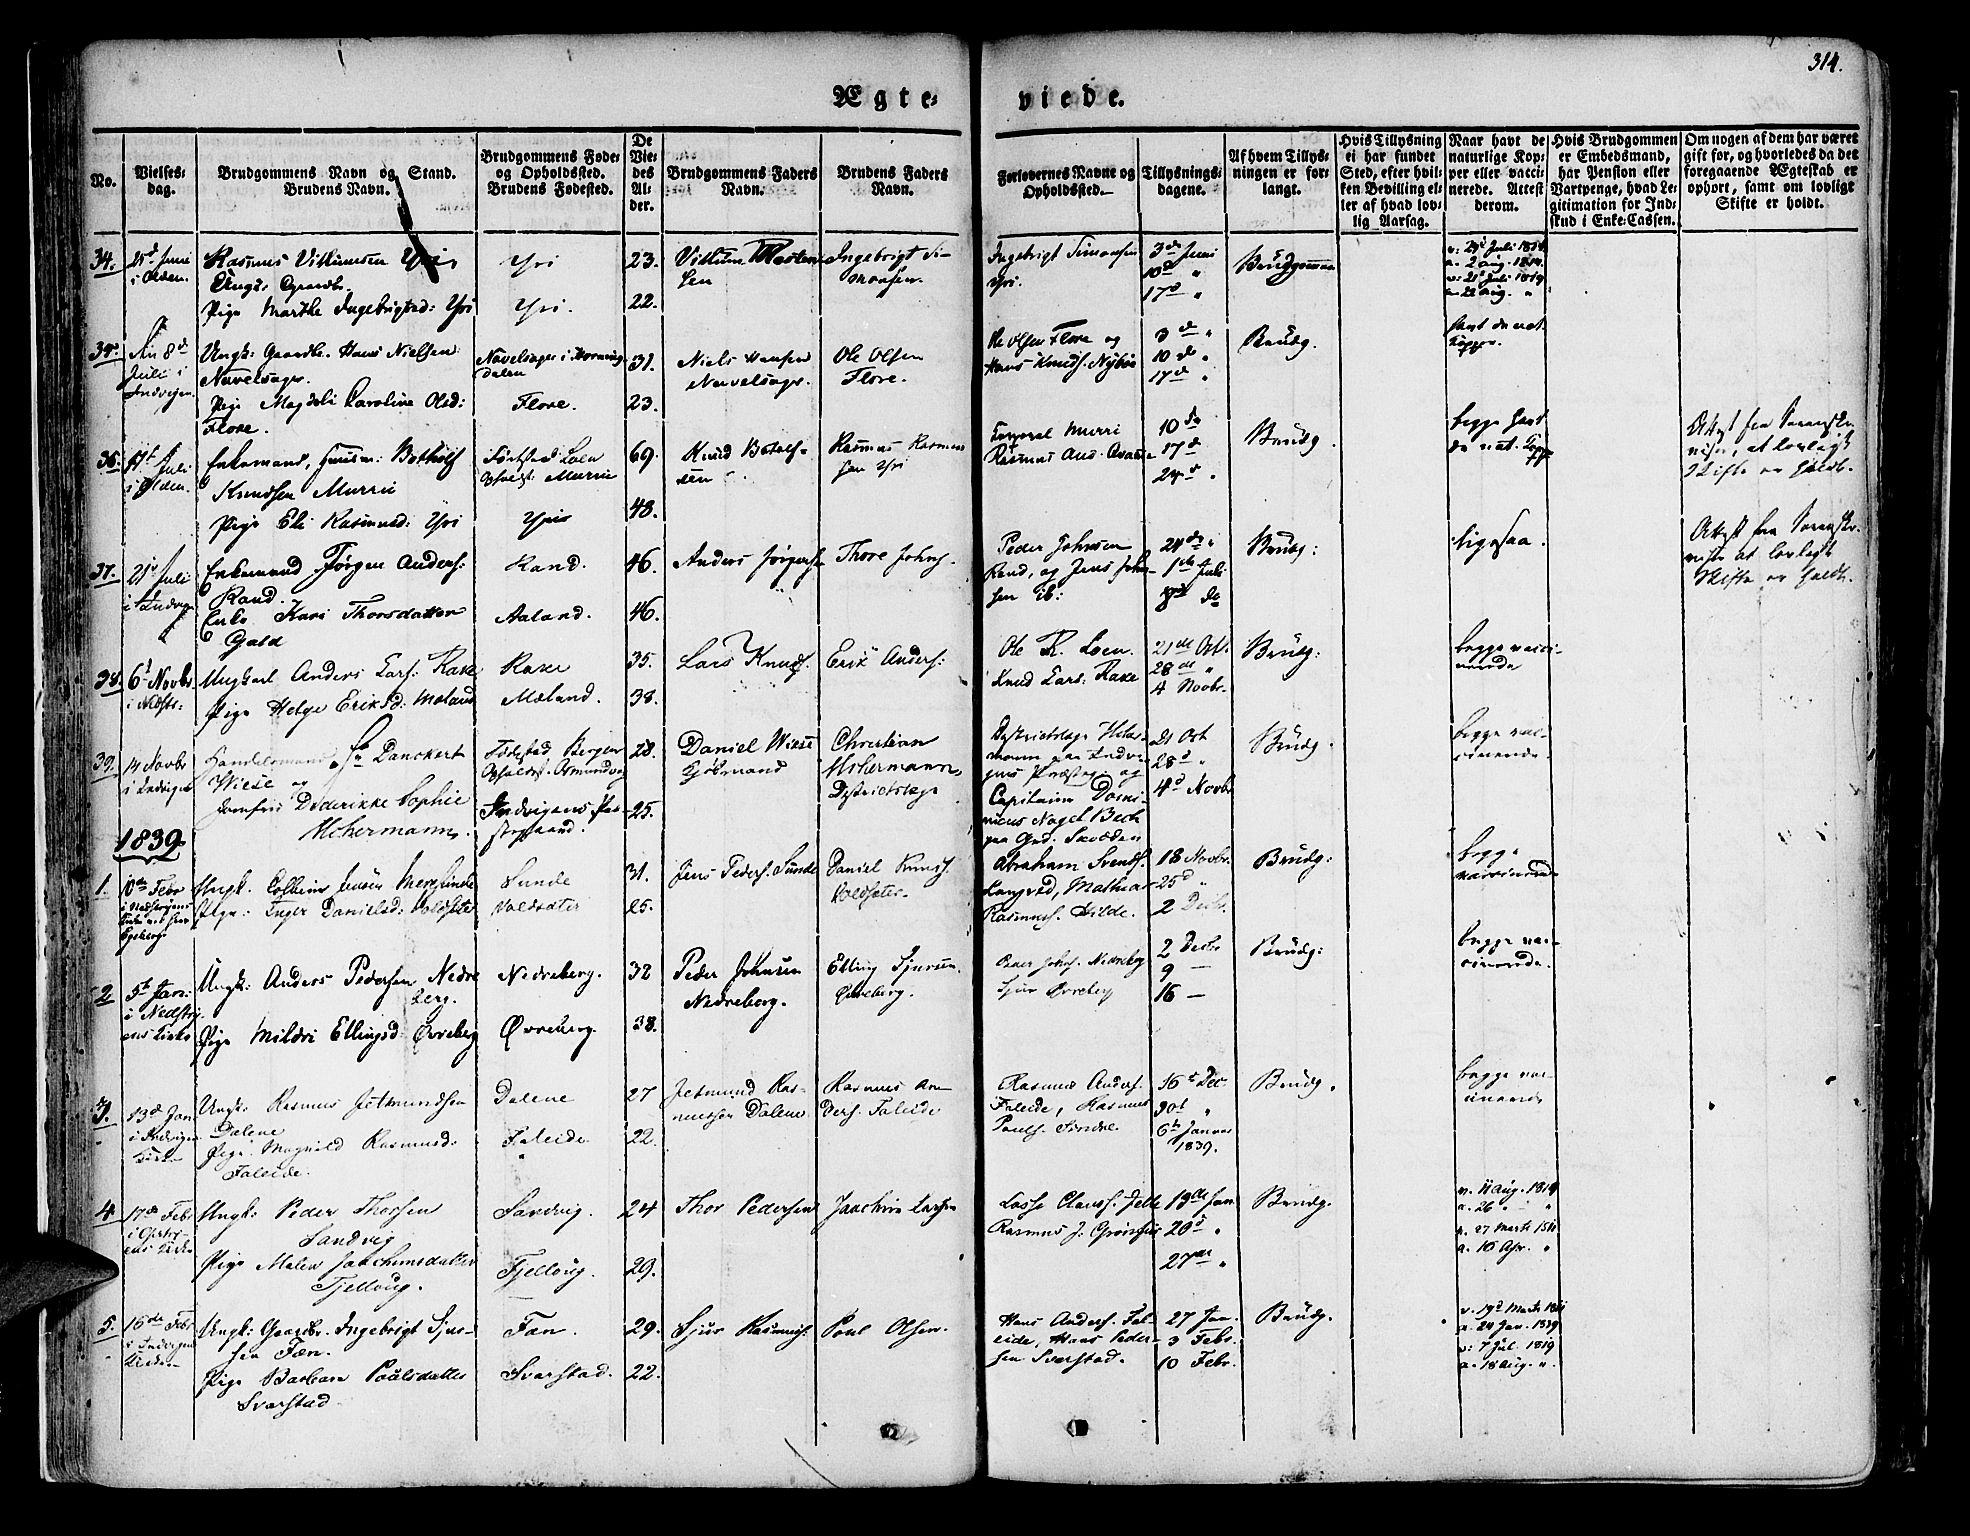 314.
Ægte-
viede.
No.
Vielses-
dag.
Brudgommens Navn og Stand.
Brudens Navn.
Brudgommens Føde-
og Opholdssted.
Brudens Fødested.
De
Vie-
des
Al-
der.
Brudgommens Faders
Navn.
Brudens Faders
Navn.
Forlovernes Navne og
Opholdssted.
Tillysnings-
dagene.
Af hvem Tillys-
ningen er for-
langt.
Hvis Tillysning
ei har fundet
Sted, efter hvil-
ken Bevilling el-
ler af hvad lov-
lig Aarsag.
Naar havt de
naturlige Kop-
per eller vacci-
nerede. Attest
derom.
Hvis Brudgommen
er Embedsmand,
har Pension eller
Vartpenge, hvad Le-
gitimation for Ind-
skud i Enke-Cassen.
Om nogen af dem har været
gift før, og hvorledes da det
foregaaende Ægteskab er
ophørt, samt om lovligt
Skifte er holdt.
34.
i Olden.
Rasmus Villumsen Yri
Pige Marthe Ingebrigtsd: Yri
Yri
Yri.
23.
22.
Villum
sen
Ingebrigt Si-
monsen.
Ingebrigt Simonsen
Yri.
3de Juni
10d "
17d "
Brudgommen
v: 29 Juli 1814
a. 2 aug. 1814.
v: 21 Juli 1819
a. 22 aug. "
Den 8d
Juli i
Indvigen
Ungk: Gaardbr. Hans Nielsen
Navelsager.
Pige Magdeli Caroline Olsd:
Flore.
Navelsager i Horning-
dalen
Flore.
31.
23.
Niels Hansen
Navelsager.
Ole Olsen
Flore.
Ole Olsen Flore og
Hans Knuds. Nybøe
3 d "
10 d "
17 d "
Brudg.
havt de nat.
kopper.
36.
Juli
i Olden.
Enkemand, Huusm: Botholf
Knudsen Murrii
Pige Eli Rasmusd: Yri
Fødested: Loen
Opholdst: Murrii
Yri
69.
48.
Knud Botolf-
sen
Rasmus Rasmus-
sen Yri
Corporal Murri
Rasmus And.
10 d
17 d
24 d "
Brudg.
begge havt
de nat. kopper
Attest fra Sorenskr-
at lovligt
Skifte er holdt.
37.
21 Juli
i Indvigen
Enkemand Jørgen Anders:
Rand.
Enke Kari Thorsdatter
Gald
Rand.
Aaland.
46.
46.
Anders Jørgens
Thore Johns.
Peder Johnsen
Rand, og Jens John-
sen ib:
24de "
1de Juli
8d do
Brudg:
ligesaa.
Attest fra Sorenskr-
at lovligt
Skifte er holdt.
38.
6d Novbr
i Nedst:
Ungkarl Anders Lars: Rake
Pige Helge Eriksd: Mæland
Rake
Mæland.
35.
38.
Lars Knuds.
Erik Anders:
Ole R. Loen.
Knud Lars: Rake
21de Oct.
28de "
4 Novbr.
Brudg:
begge vacci-
nerede
39.
14 Novbr
i Indvigen
Handelsmand Hr Danckert
Wiese og
Jomfru Diderikke Sophie
Uchermann.
Fødested Bergen
Opholdst. Osmundvog
Indvigens Præ-
stegaard.
28.
25.
Daniel Wiese
Kjøbmand
Christian
Uchermann,
Districtslæge
Districtslæge Ucher-
mann paa Indvi-
gens Præsteg: og
Capitaine Domi-
nicus Nagel Bech
paa Grd.
21 Oct
28d "
4d Novbr
Brudg.
begge vac-
cinerede.
1839.
1.
10de Febr
Ungk: Colbein Jensen
Pige: Inger Danielsd: Voldsæter
Sunde
Voldsæter
31.
25.
Jens Peders. Sunde
Daniel Knuds.
Voldsæter.
Abraham Svends.
Langvad, Mathias
Rasmuss. Hilde.
18 Novbr.
25d "
2 Decbr.
Brudg:
begge
vaccinerede
2
5t Jan:
i Nedstry-
ens Kirke
Ungk: Anders Pedersen Nedre
berg.
Pige Mildri Ellingsd: Øvreberg
Nedreberg.
Øvreberg.
32
38.
Peder Johnsen
Nedreberg.
Elling Sjursen.
Øvreberg.
Peder Johns. Nedreberg
Sjur Øvreberg
2 Decbr
9 —
16 —
Brudg:
begge vac-
cinerede.
3.
13d Jan
i Indvigen
Kirke
Ungk: Rasmus Jetmundsen
Dalene
Pige: Magnild Rasmusd:
Faleide.
Dalene
Faleide
27
22.
Jetmund Ras-
mussen Dalene.
Rasmus An-
ders. Faleide
Rasmus Anders.
Faleide, Rasmus
Pouls.
16d Dec
30d "
6te Januar
1839.
Brudg.
begge vac-
cinerede
4
17de Febr
Kirke
Ungk: Peder Thorsen
Sandvig
Pige Malen Joachimsdatter
Tjellaug.
Sandvig.
Tjellaug.
24
29.
Thor Pedersen
Joachim Larsen
Lasse Clauss.
Rasmus J.
13de Jan
20d "
27de "
Brudg.
v. 11 aug. 1814
a. 26 " "
v. 27 Marts
a. 16 Apr. "
5.
16de Febr
i Indvigens
Kirke
Ungk: Gaardbr. Ingebrigt Sjur-
sen Fæn.
Pige Barbara Poulsdatter
Svarstad.
Fæn.
Svarstad.
29.
22.
Sjur Rasmuss.
Poul Olsen.
Hans Anders. Fal-
eide, Hans Peder-
sen Svarstad.
27 Jan.
3 Febr.
10 Febr.
Brudg.
v. 19d Marts
a. 24 Jan. 1839
v: 7 Jul. 1819
a. 18 aug. ".